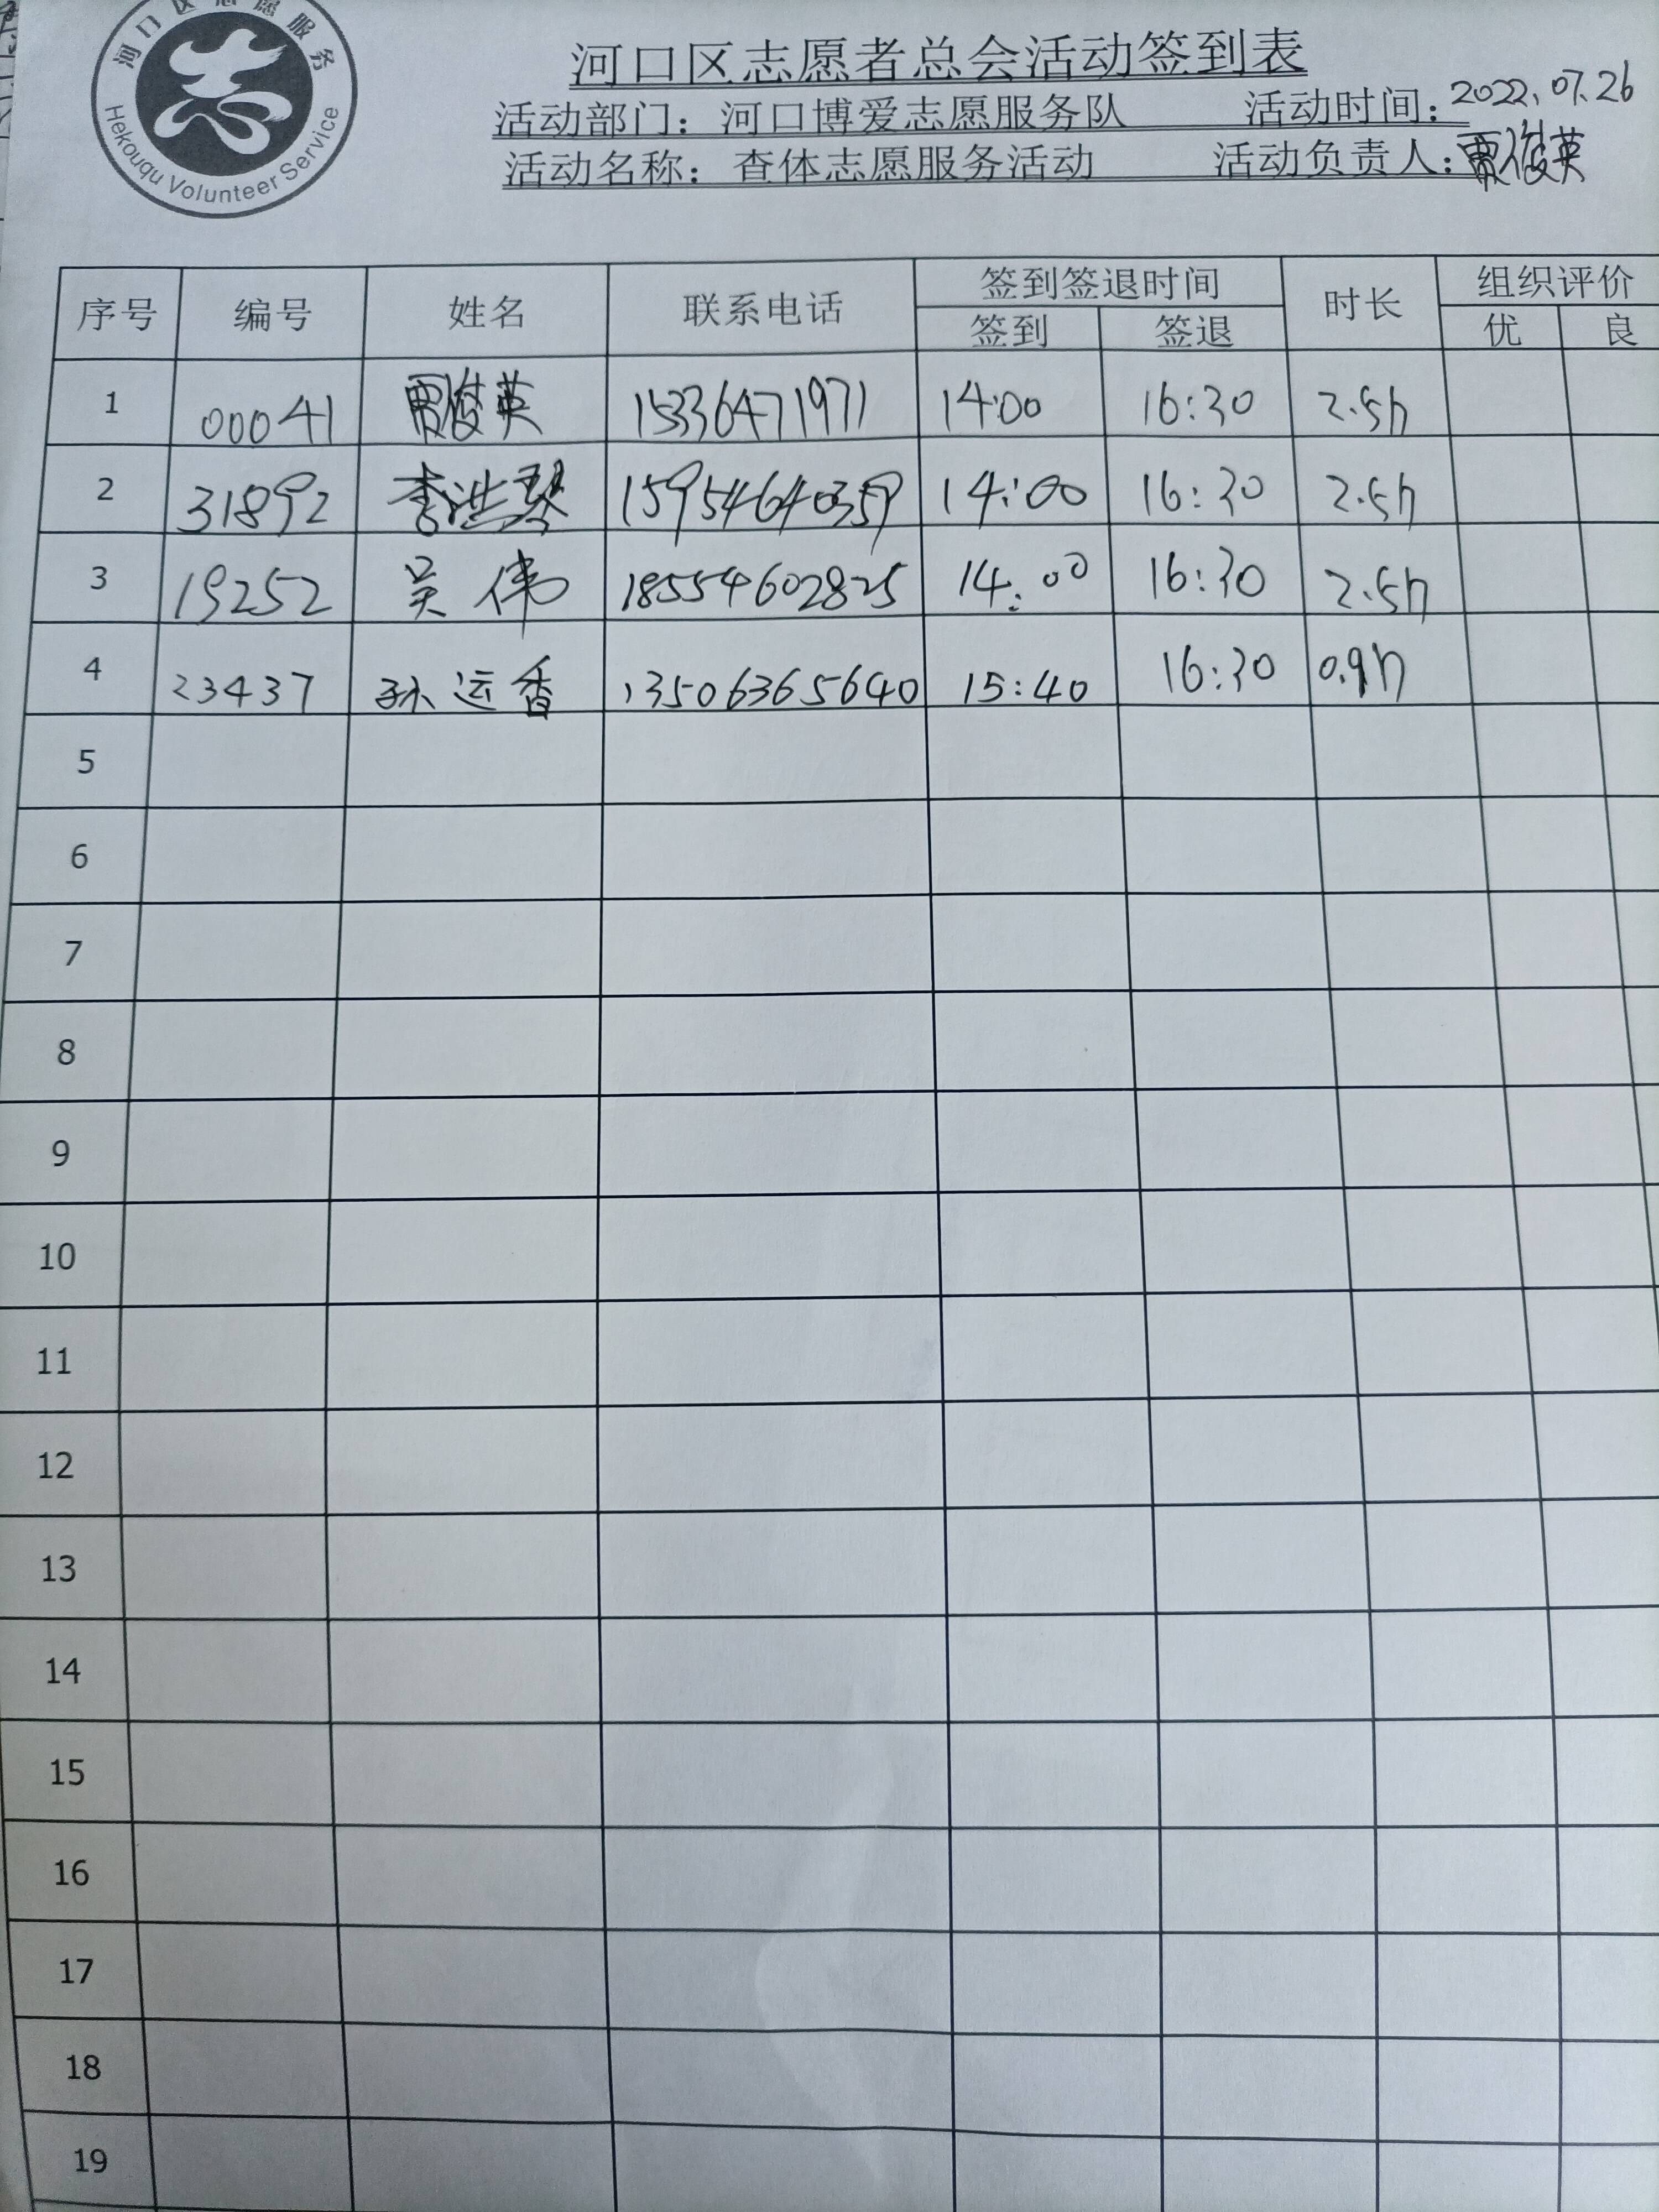 河口区志愿服务
Hekouqu Volunteer Service
河口区志愿者总会活动签到表
活动部门：河口博爱志愿服务队 活动时间：2022.07.26
活动名称：查体志愿服务活动 活动负责人：贾俊英
序号 编号 姓名 联系电话 签到签退时间 时长 组织评价
签到 签退 优 良
1 00041 贾俊英 15336471971 14:00 16:30 2.5h
2 31892 李洪琴 15954640359 14:00 16:30 2.5h
3 19252 吴伟 18554602825 14:00 16:30 2.5h
4 23437 孙运香 13506365640 15:40 16:30 0.9h
5
6
7
8
9
10
11
12
13
14
15
16
17
18
19